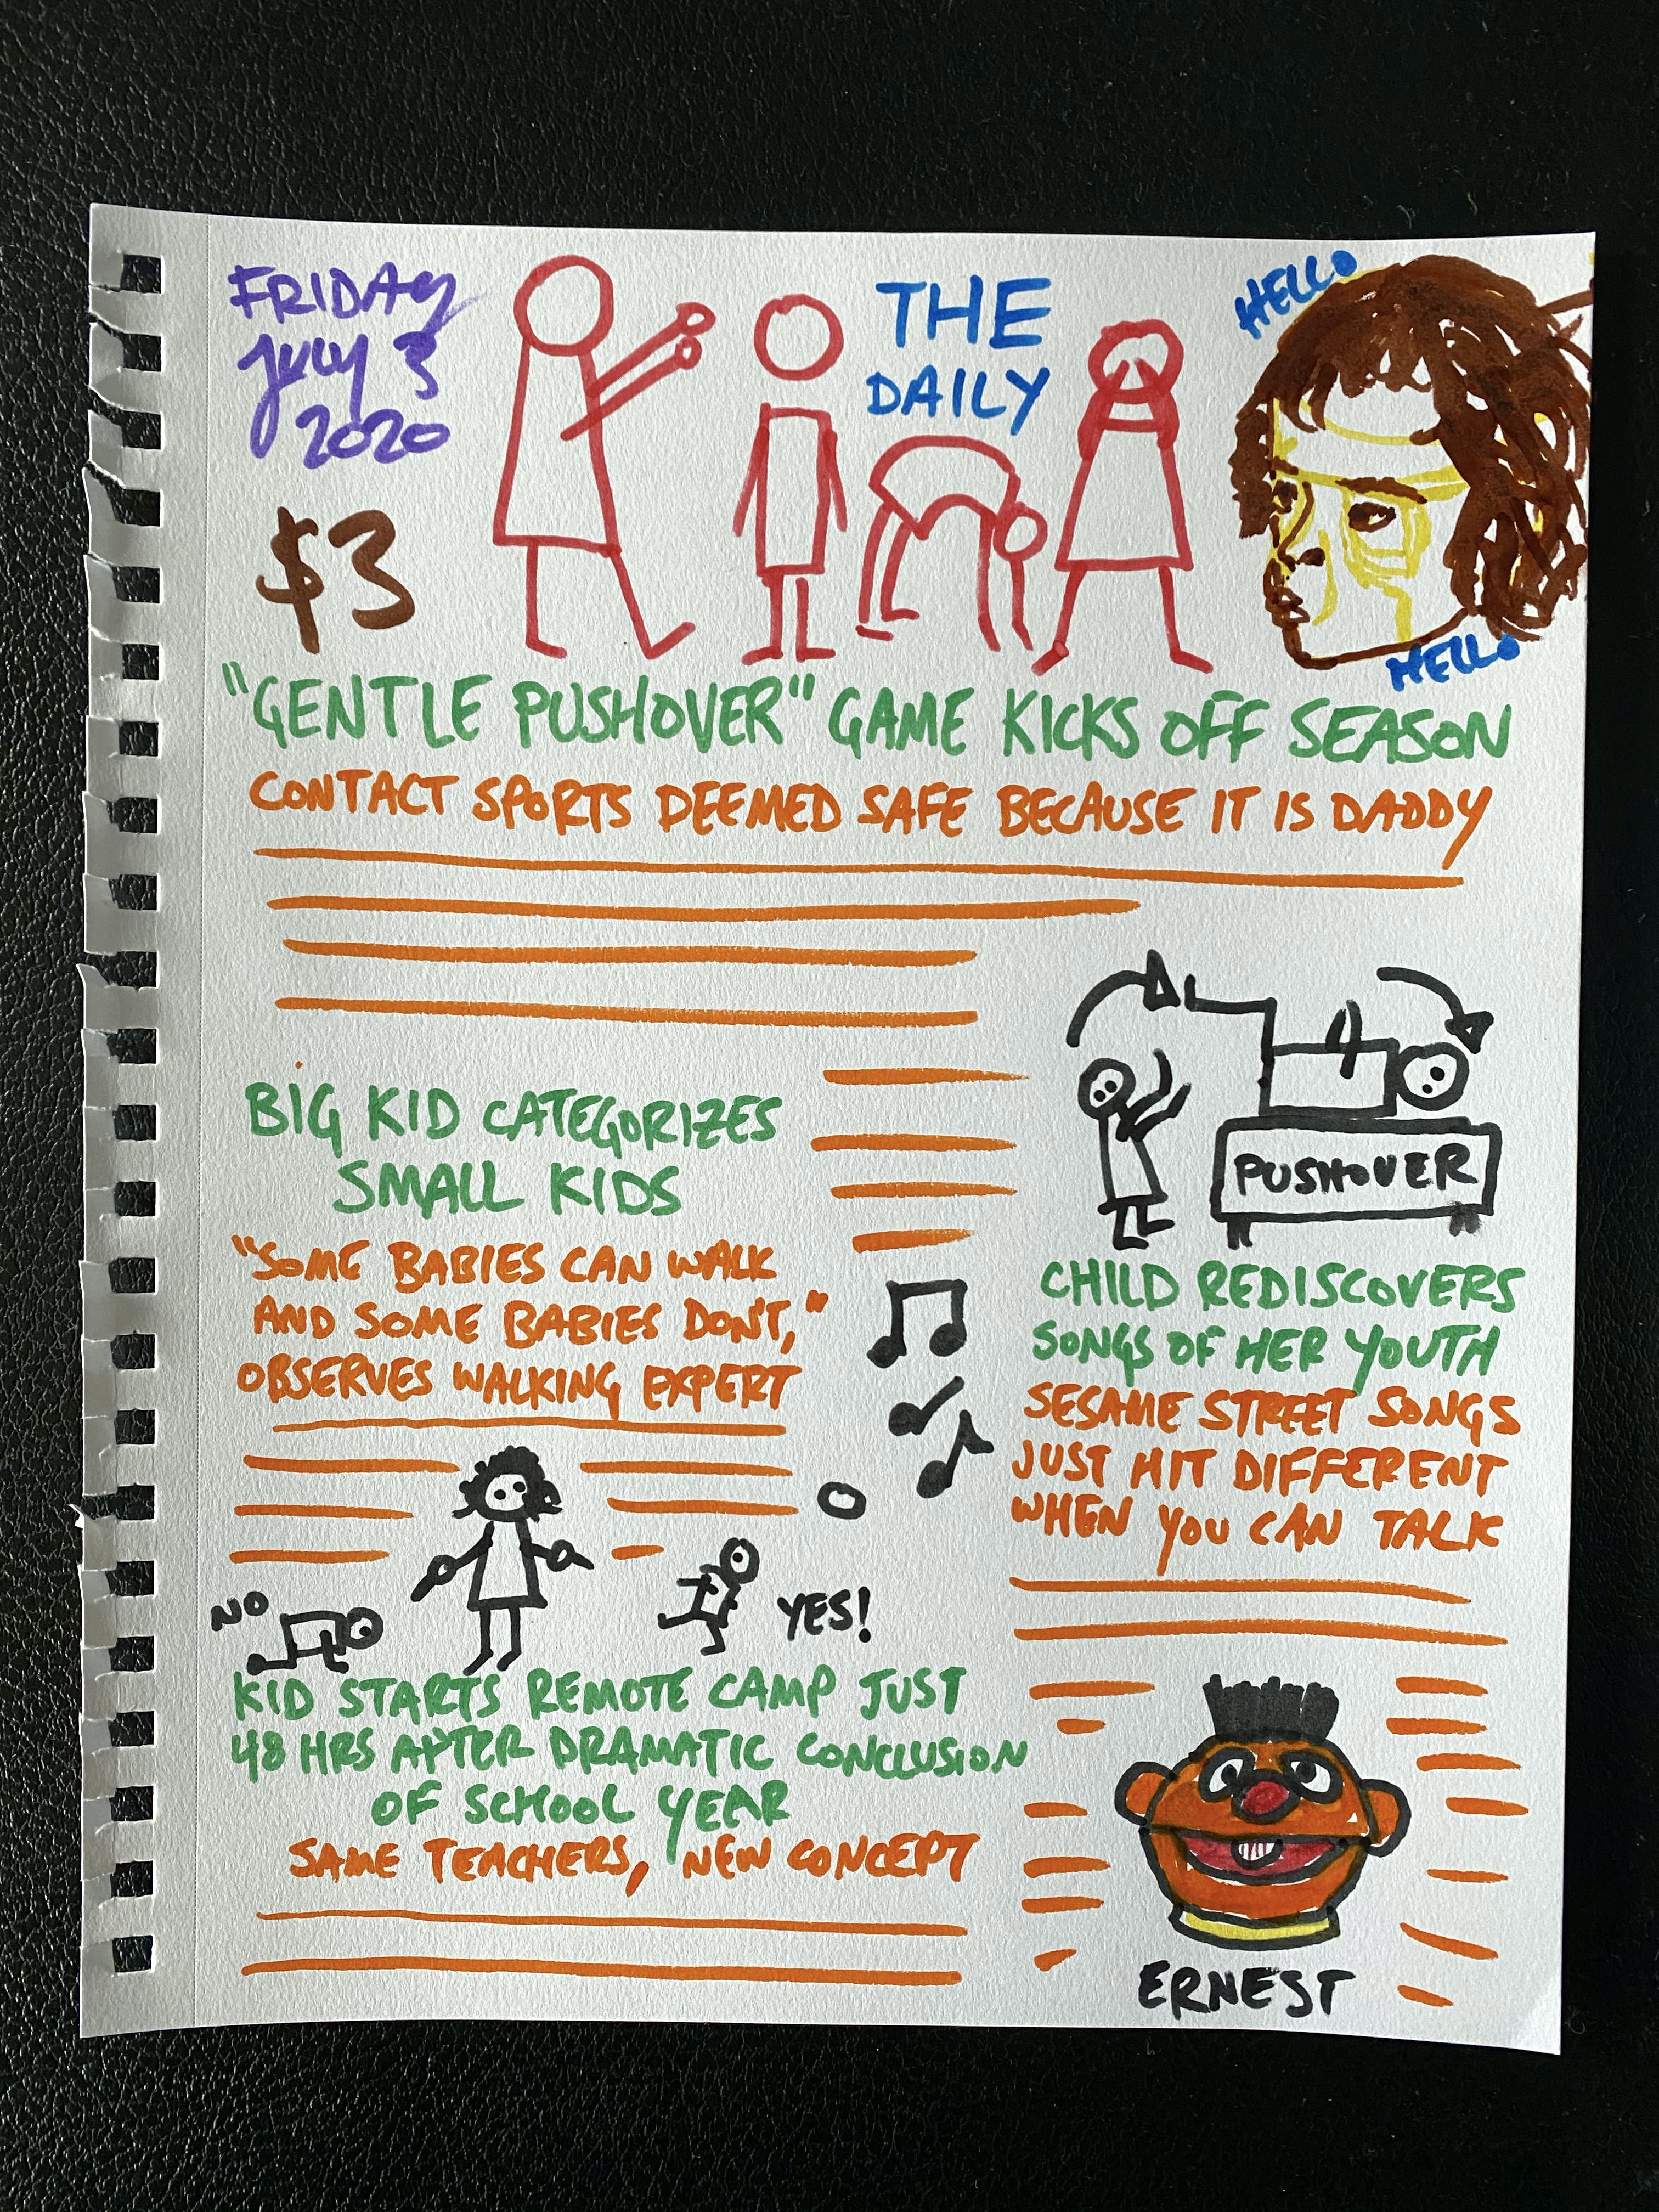 FRIDAY
JULY 3
2020
$3
THE
DAILY
HELLO
HELLO
"GENTLE PUSHOVER" GAME KICKS OFF SEASON
CONTACT SPORTS DEEMED SAFE BECAUSE IT IS DADDY
PUSHOVER
BIG KID CATEGORIZES
SMALL KIDS
"SOME BABIES CAN WALK
AND SOME BABIES DON'T,"
OBSERVES WALKING EXPERT
NO
YES!
CHILD REDISCOVERS
SONGS OF HER YOUTH
SESAME STREET SONGS
JUST HIT DIFFERENT
WHEN YOU CAN TALK
KID STARTS REMOTE CAMP JUST
48 HRS AFTER DRAMATIC CONCLUSION
OF SCHOOL YEAR
SAME TEACHERS, NEW CONCEPT
ERNEST